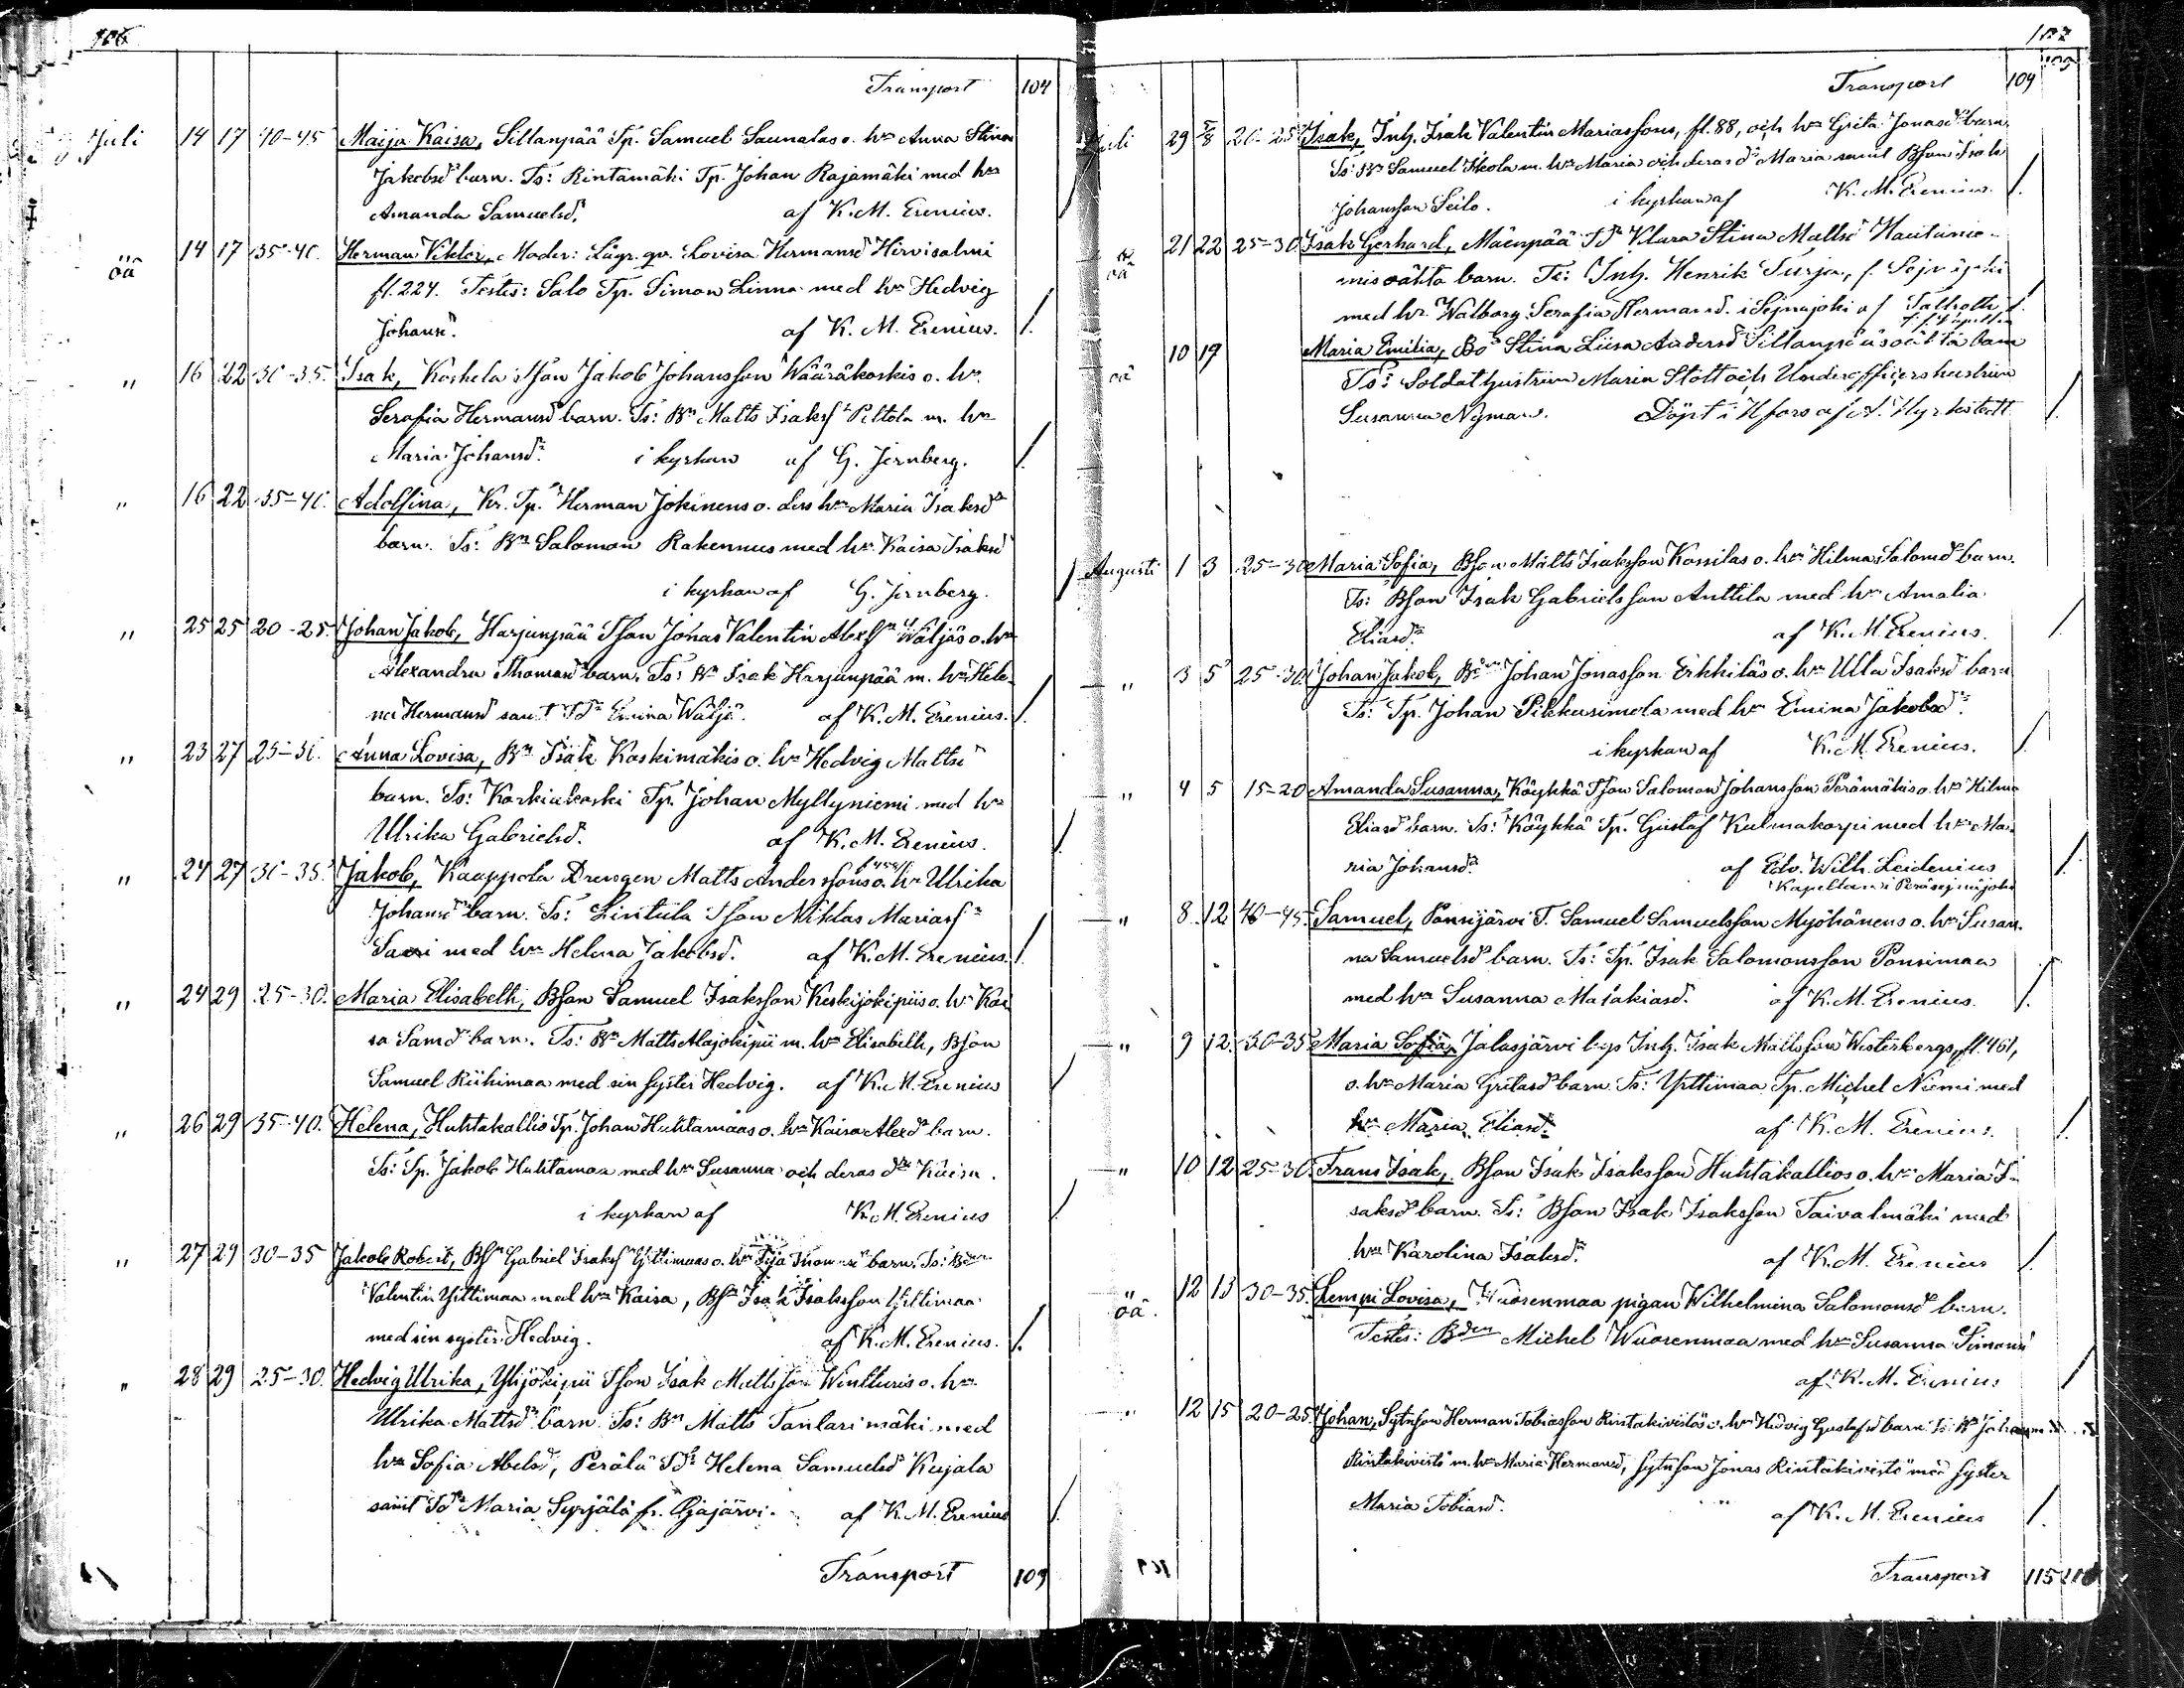 106
Transport 104
Juli 14 17 40-45 Maija Kaisa, Sillanpää Tp. Samuel Saunalas o. hn Anna Stina
Jakobsd barn. Ts: Rintamäki Tp. Johan Rajamäki med hn
Amanda Samuelsd. af K. M. Erenius.
oä 14 17 35-40. Herman Viktor, Moder: Lägr. qv. Lovisa Hermansd Hirvisalmi
fl. 224. Testes: Salo Tp. Simon Linna med hn Hedvig
Johansd. af K. M. Erenius.
" 16 22 30-35. Isak, Koskela Sson Jakob Johansson Wääräkoskis o. hn
Serafia Hermansd barn. Ts: Bn Matts Isakss Peltola m. hn
Maria Johansd. i kyrkan af G. Jernberg.
" 16 22 35-40. Adolfina, Kr. Tp. Herman Jokinens o. dess hn Maria Isaksd
barn. Ts: Bn Salomon Rakennus med hn Kaisa Isaksd
i kyrkan af G. Jernberg.
" 25 25 20-25. Johan Jakob, Harjunpää Sson Jonas Valentin Alexss Wäljäs o. hn
Alexandra Thomasd barn. Ts: Bn Isak Harjunpää m. hn Hele-
na Hermansd samt Td Emina Wäljä. af K. M. Erenius.
" 23 27 25-30. Anna Lovisa, Bn Isak Koskimäkis o. hn Hedvig Mattsd
barn. Ts: Korkiakoski Tp. Johan Myllyniemi med hn
Ulrika Gabrielsd. af K. M. Erenius.
" 24 27 30-35. Jakob, Kaappola Drengen Matts Anderssons o. hn Ulrika
Johansd barn. Ts: Lintula Sson Niklas Mariass
Saari med hn Helena Jakobsd. af K. M. Erenius.
" 24 29 25-30. Maria Elisabeth, Bson Samuel Isaksson Keskijokipiis o. hn Kai
sa Samd barn. Ts: Bn Matts Alajokipii m. hn Elisabeth, Bson
Samuel Riihimaa med sin syster Hedvig. af K. M. Erenius
" 26 29 35-40. Helena, Huhtakallio Tp. Johan Huhtamaas o. hn Kaisa Alexd barn.
Ts: Tp. Jakob Huhtamaa med hn Susanna och deras dr Kaisa.
i kyrkan af K. M. Erenius
" 27 29 30-35 Jakob Robert, Bsn Gabriel Isakss Yrttimaas o. hn Thomasd barn. Ts: Bden
Valentin Yrttimaa med hn Kaisa, Bsn Isak Isaksson Yrttimaa
med sin syster Hedvig. af K. M. Erenius.
" 28 29 25-30. Hedvig Ulrika, Ylijokipii Sson Isak Mattsson Wentturis o. hn
Ulrika Mattsd barn. Ts: Bn Matts Tanlarimäki med
hn Sofia Abelsd, Perälä Td Helena Samuelsd Kujala
samt Td Maria Syrjälä fr. af K. M. Erenius
Transport 109
107
Transport 109
Juli 29 5/8 20-25 Isak, Inh. Isak Valentin Mariassons, fl. 88, och hn Greta Jonasd barn.
Ts: Bn Samuel m. hn Maria och deras dr Maria samt Bson Isak
Johansson Seilo. i kyrkan af K. M. Erenius.
oä 21 22 25-30 Isak Gerhard, Mäenpää Td Klara Stina Mattsd
misoäkta barn. Ts: Inh. Henrik Turja, f. Sejnäjoki
med hn Walborg Serafia Hermansd. i Sejnäjoki af
oä 10 19 Maria Emilia, Stina Liisa Andersd Sillanpääs oäkta barn
Ts: Soldat hustrun Maria Stolt och Underofficers hustrun
Susanna Nyman. Döpt i Hfors af A. Hyrkstedt
Augusti 1 3 25-30 Maria Sofia, Bson Matts Isaksson Kossilas o. hn Hilma Salomd barn.
Ts: Bson Isak Gabrielsson Anttila med hn Amalia
Eliasd. af K. M. Erenius.
" 3 5 25-30. Johan Jakob, Bden Johan Jonasson Erkkiläs o. hn Ulla Isaksd barn
Ts: Tp. Johan Pikkusimola med hn Emina Jakobsd.
i kyrkan af K. M. Erenius.
" 4 5 15-20 Amanda Susanna, Köykkä Sson Salomon Johansson Perämäkis o. hn Hilma
Eliasd barn. Ts: Köykkä Tp. Gustaf Kulmakorpi med hn Ma-
ria Johansd. af Edv. Wilh. Leidenius
Kapellan i Peräsejnäjoki
" 8 12 40-45. Samuel, Ponsijärvi T. Samuel Samuelsson Myöhänens o. hn Susan-
na Samuelsd barn. Ts: Tp. Isak Salomonsson Ponsimaa
med hn Susanna Malakiasd. af K. M. Erenius.
" 9 12 30-35 Maria Sofia, Jalasjärvi bys Inh. Isak Mattsson Westerbergs, fl. 461,
o. hn Maria Gretasd barn. Ts: Yrttimaa Tp. Michel Niemi med
hn Maria Eliasd. af K. M. Erenius.
" 10 12 25-30. Frans Isak, Bson Isak Isaksson Huhtakallios o. hn Maria I-
saksd barn. Ts: Bson Isak Isaksson Taivalmäki med
hn Karolina Isaksd. af K. M. Erenius
oä. 12 13 30-35. Lempi Lovisa, Wuorenmaa pigan Wilhelmina Salomonsd barn.
Testes: Bden Michel Wuorenmaa med hn Susanna Simonsd
af K. M. Erenius
" 12 15 20-25 Johan, Sytnson Herman Tobiasson Rintakivistös o. hn Hedvig Gustafsd barn Ts: Bn Johan
Rintakivistö m. hn Maria Hermansd, Sytnson Jonas Rintakivistö med syster
Maria Tobiasd. af K. M. Erenius
Transport 115